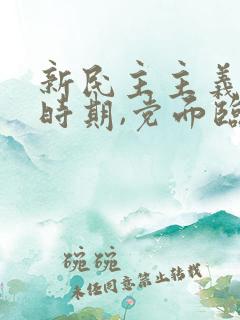 新民主主義
時期,党面臨
碗碗
未经同意禁止转载